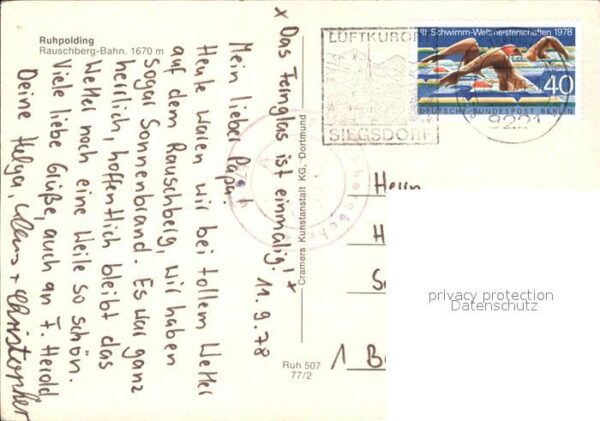 Ruhpolding
Rauschberg-Bahn. 1670 m
x Das Fernglas ist einmalig! x
11.9.78
Mein lieber Papa!
Heute waren wir bei tollem Wetter
auf dem Rauschberg, wir haben
sogar Sonnenbrand. Es war ganz
herrlich, hoffentlich bleibt das
Wetter noch eine Weile so schön.
Viele liebe Grüße, auch an F. Herold
Deine Helga, Klaus + Christopher
Cramers Kunstanstalt KG, Dortmund
Ruh 507
77/2
LUFTKURORT
SIEGSDORF
III. Schwimm-Weltmeisterschaften 1978
40
DEUTSCHE BUNDESPOST BERLIN
8221
Herrn
H
1 B
privacy protection
Datenschutz